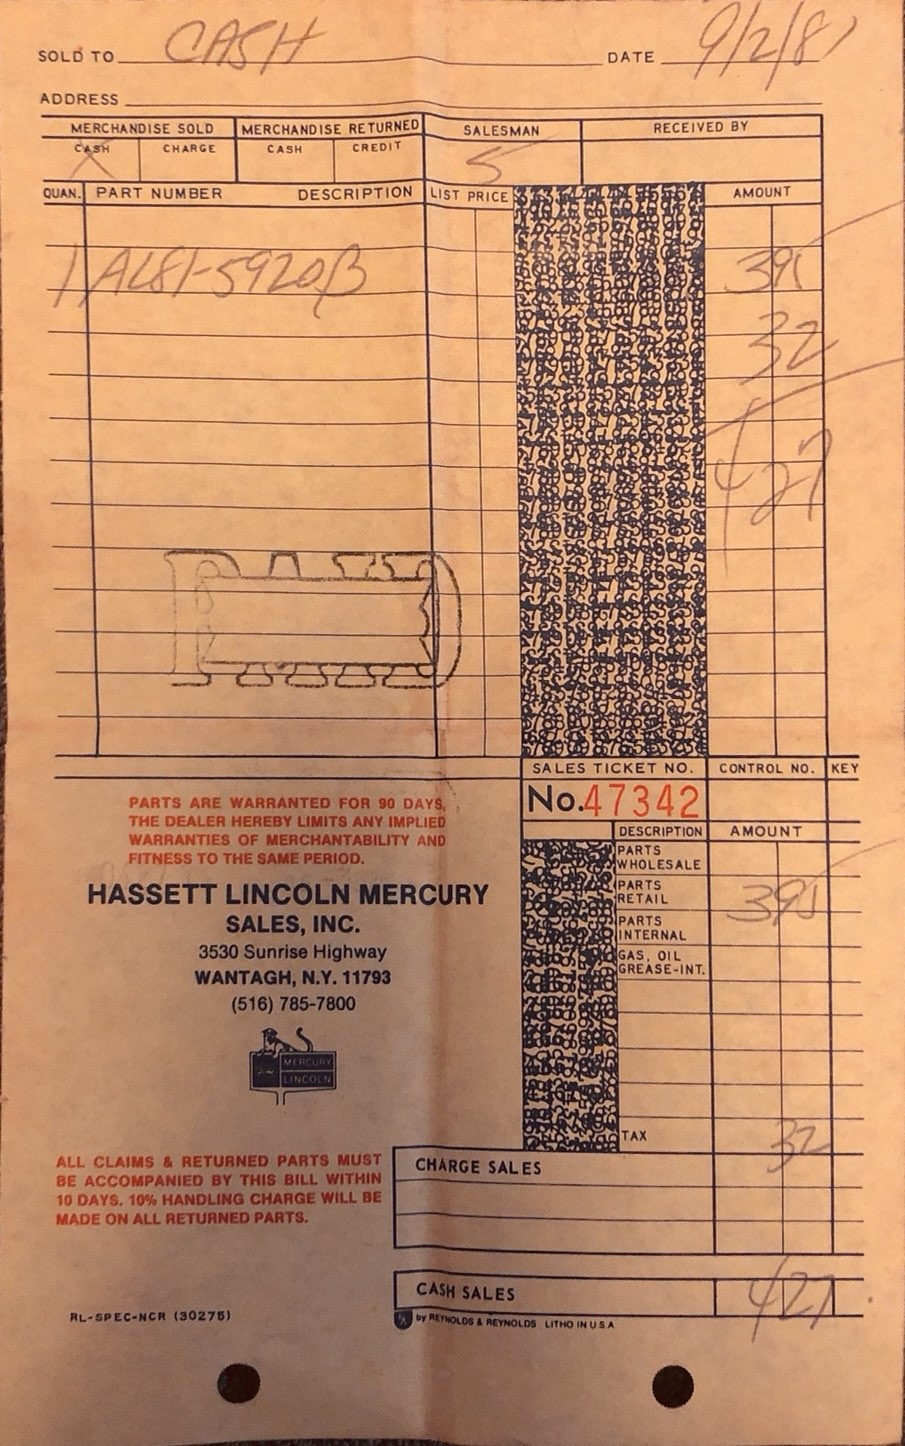 SOLD TO CASH DATE 9/2/81
ADDRESS
MERCHANDISE SOLD MERCHANDISE RETURNED SALESMAN RECEIVED BY
CASH CHARGE CASH CREDIT 5
X
QUAN. PART NUMBER DESCRIPTION LIST PRICE AMOUNT
1 AL81-5920B 395
32
427
SALES TICKET NO. CONTROL NO. KEY
No.47342
DESCRIPTION AMOUNT
PARTS WHOLESALE
PARTS RETAIL 395
PARTS INTERNAL
GAS, OIL GREASE-INT.
TAX 32
PARTS ARE WARRANTED FOR 90 DAYS,
THE DEALER HEREBY LIMITS ANY IMPLIED
WARRANTIES OF MERCHANTABILITY AND
FITNESS TO THE SAME PERIOD.
HASSETT LINCOLN MERCURY
SALES, INC.
3530 Sunrise Highway
WANTAGH, N.Y. 11793
(516) 785-7800
MERCURY
LINCOLN
ALL CLAIMS & RETURNED PARTS MUST
BE ACCOMPANIED BY THIS BILL WITHIN
10 DAYS. 10% HANDLING CHARGE WILL BE
MADE ON ALL RETURNED PARTS.
CHARGE SALES
CASH SALES 427
RL-SPEC-NCR (30275)
by REYNOLDS & REYNOLDS LITHO IN U.S.A.